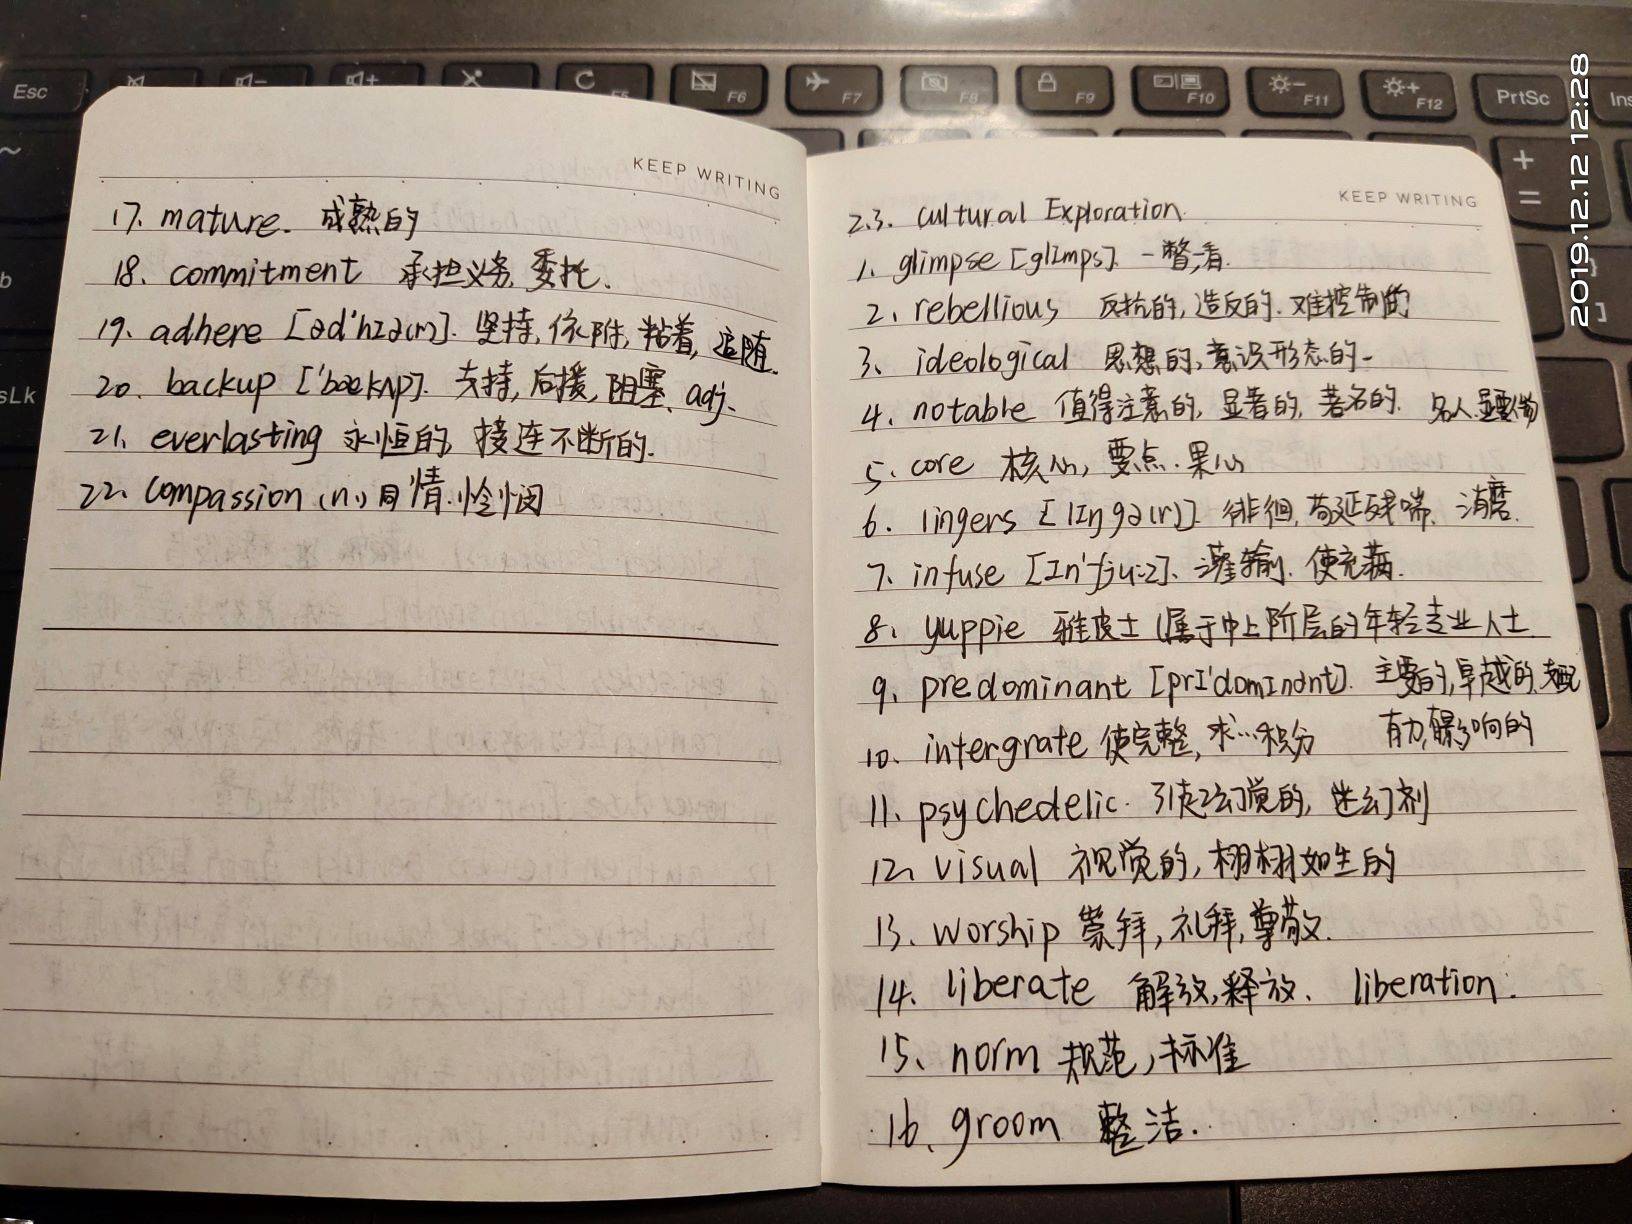 Esc
F5
F6
F7
F8
F9
F10
F11
F12
PrtSc
Ins
2019.12.12 12:28
KEEP WRITING
17. mature. 成熟的
18. commitment 承担义务, 委托.
19. adhere [əd'hɪə(r)]. 坚持, 依附, 粘着, 追随.
20. backup ['bækʌp]. 支持, 后援, 阻塞. adj.
21. everlasting 永恒的, 接连不断的.
22. compassion (n.) 同情. 怜悯
KEEP WRITING
2.3. cultural Exploration.
1. glimpse [glɪmps]. 一瞥, 看.
2. rebellious 反抗的, 造反的. 难控制的
3. ideological 思想的, 意识形态的.
4. notable 值得注意的, 显著的, 著名的. 名人. 显要人物
5. core 核心, 要点. 果心
6. lingers [lɪŋgə(r)]. 徘徊, 苟延残喘. 消磨.
7. infuse [ɪn'fju:z]. 灌输. 使充满.
8. yuppie 雅皮士 (属于中上阶层的年轻专业人士
9. predominant [prɪ'dɒmɪnənt]. 主要的, 卓越的, 支配
10. intergrate 使完整, 求…积分 有力, 有影响的
11. psychedelic. 引起幻觉的, 迷幻剂
12. visual 视觉的, 栩栩如生的
13. worship 崇拜, 礼拜, 尊敬.
14. liberate 解放, 释放. liberation.
15. norm 规范, 标准
16. groom 整洁.